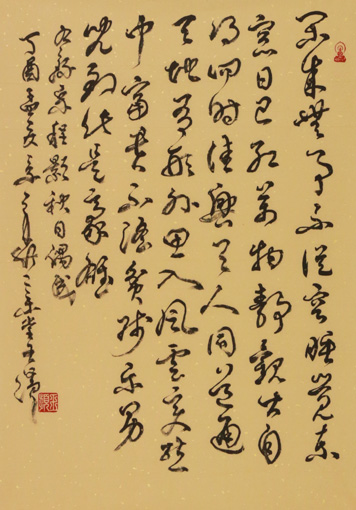 閒來無事不從容睡覺東
窗日已紅萬物靜觀皆自
得四時佳興與人同道通
天地有形外思入風雲變態
中富貴不淫貧賤樂男
兒到此是豪雄
宋程顥秋日偶成
丁酉孟夏